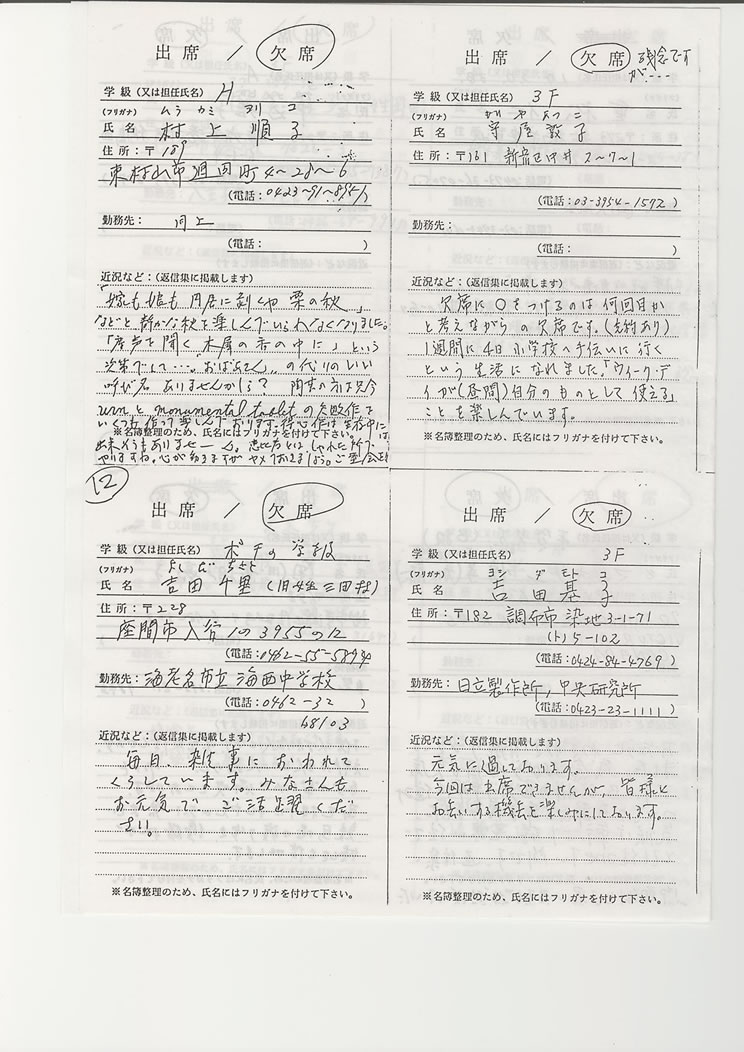 出席 / 欠席
学級(又は担任氏名) H
(フリガナ) ムラ カミ ヨリ コ
氏名 村上順子
住所:〒189
東村山市廻田町4~28~6
(電話:0423~91~
勤務先: 同上
(電話: )
近況など:(返信集に掲載します)
「嫁も娘も円居に剥くや栗の秋」
などと静かな秋を楽しんでいられなくなりました。
「産声を聞く木犀の香の中に」という
次第でして…。"おばあさん"の代りのいい
呼び名ありませんかしら?
urnとmonumental tabletの失敗作を
いくつも作って楽しんでおります。
※名簿整理のため、氏名にはフリガナを付けて下さい。
出席 / 欠席 残念です
が……
学級(又は担任氏名) 3F
(フリガナ) もりや あつこ
氏名 守屋敦子
住所:〒161 新宿区中井2~7~1
(電話:03-3954-1572)
勤務先:
(電話: )
近況など:(返信集に掲載します)
欠席に○をつけるのは何回目か
と考えながらの欠席です。(先約あり)
1週間に4日小学校へ手伝いに行く
という生活になれました。「ウィークデ
イが(昼間)自分のものとして使える」
ことを楽しんでいます。
※名簿整理のため、氏名にはフリガナを付けて下さい。
12
出席 / 欠席
学級(又は担任氏名) ポチの学級
(フリガナ) よしだ ちさと
氏名 吉田千里(旧姓三田村)
住所:〒228
座間市入谷1の3955の12
(電話:0462-55-
勤務先:海老名市立海西中学校
(電話:0462-32
近況など:(返信集に掲載します)
毎日、雑事におわれて
くらしています。みなさんも
お元気でご活躍くだ
さい。
※名簿整理のため、氏名にはフリガナを付けて下さい。
出席 / 欠席
学級(又は担任氏名) 3F
(フリガナ) ヨシ ダ モト コ
氏名 吉田基子
住所:〒182 調布市染地3-1-71
(ト)5-102
(電話:0424-84-4769)
勤務先:日立製作所,中央研究所
(電話:0423-23-1111)
近況など:(返信集に掲載します)
元気に過しております。
今回は出席できませんが、皆様と
お会いする機会を楽しみにしております。
※名簿整理のため、氏名にはフリガナを付けて下さい。